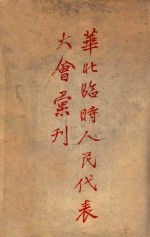 華北臨時人民代表
大會彙刊